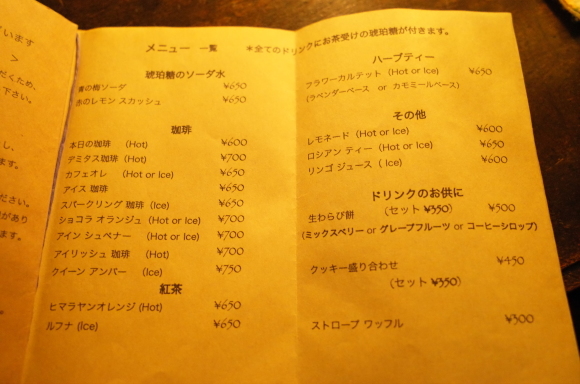 います
>
だくため、
下さい。
し、
ます。
ださい。
があり
ます。
メニュー 一覧 *全てのドリンクにお茶受けの琥珀糖が付きます。
琥珀糖のソーダ水
青の樹ソーダ ¥650
赤のレモン スカッシュ ¥650
珈琲
本日の珈琲 (Hot) ¥600
デミタス珈琲 (Hot) ¥700
カフェオレ (Hot or Ice) ¥650
アイス 珈琲 ¥650
スパークリング 珈琲 (Ice) ¥650
ショコラ オランジュ (Hot or Ice) ¥700
アイン シュペナー (Hot or Ice) ¥700
アイリッシュ 珈琲 (Hot) ¥700
クイーン アンバー (Ice) ¥750
紅茶
ヒマラヤンオレンジ (Hot) ¥650
ルフナ (Ice) ¥650
ハーブティー
フラワーカルテット (Hot or Ice) ¥650
(ラベンダーベース or カモミールベース)
その他
レモネード (Hot or Ice) ¥600
ロシアン ティー (Hot or Ice) ¥650
リンゴ ジュース ( Ice) ¥600
ドリンクのお供に
生わらび餅 (セット ¥350) ¥500
(ミックスベリー or グレープフルーツ or コーヒーシロップ)
クッキー盛り合わせ ¥450
(セット ¥350)
ストロープ ワッフル ¥300